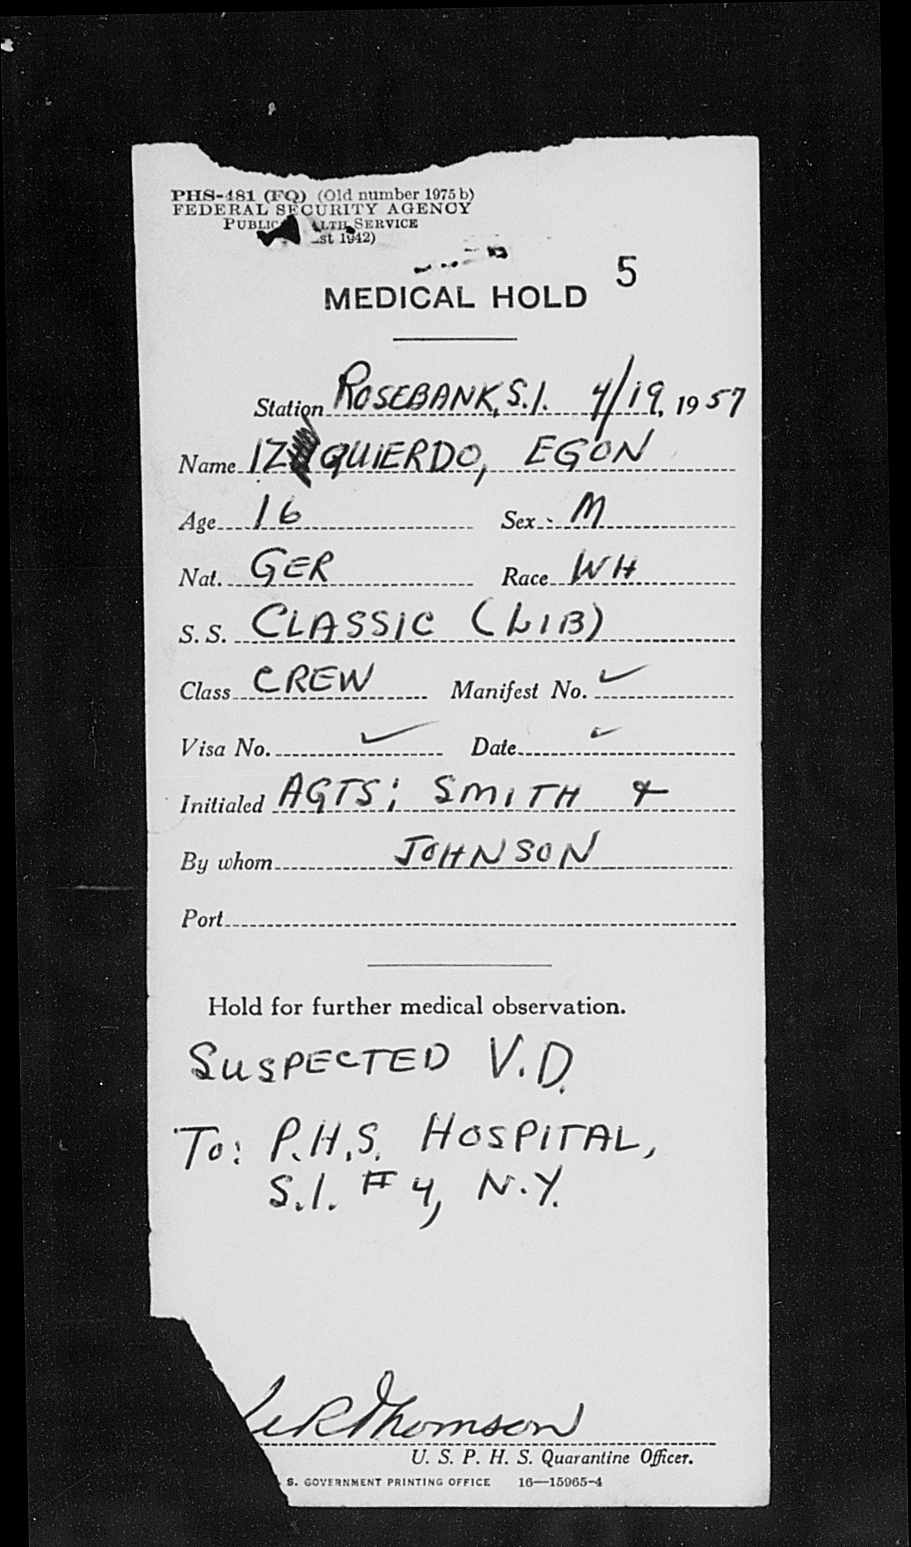 PHS-481 (FQ) (Old number 1975 b)
FEDERAL SECURITY AGENCY
PUBLIC SERVICE
1942)
MEDICAL HOLD 5
Station ROSEBANK, S.I. 4/19, 1957
Name IZQUIERDO, EGON
Age 16 Sex M
Nat. GER Race WH
S. S. CLASSIC (LIB)
Class CREW Manifest No. ✓
Visa No. ✓ Date ✓
Initialed AGTS: SMITH &
By whom JOHNSON
Port
Hold for further medical observation.
SUSPECTED V.D.
To: P.H.S. HOSPITAL,
S.I. #4, N.Y.
R Thomson
U. S. P. H. S. Quarantine Officer.
S. GOVERNMENT PRINTING OFFICE 16—15965-4